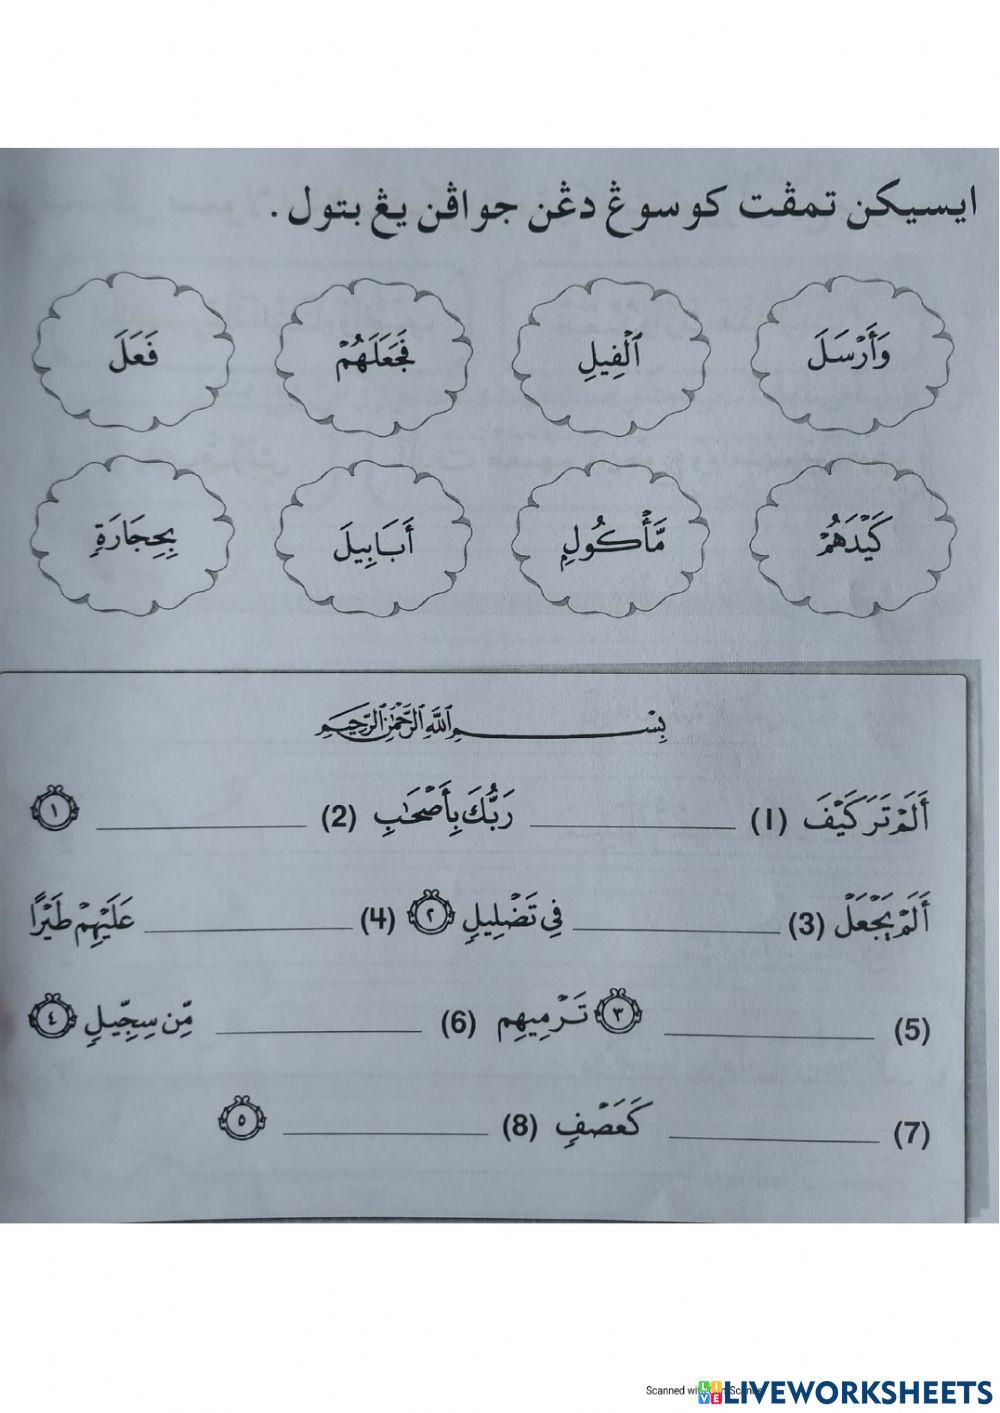 ايسيكن تمڤت كوسوڠ دڠن جواڤن يڠ بتول.
وَأَرْسَلَ ٱلْفِيلِ فَجَعَلَهُمْ فَعَلَ
كَيْدَهُمْ مَّأْكُولِۭ أَبَابِيلَ بِحِجَارَةٍ
بِسْمِ ٱللَّهِ ٱلرَّحْمَٰنِ ٱلرَّحِيمِ
أَلَمْ تَرَ كَيْفَ (1) ________ رَبُّكَ بِأَصْحَٰبِ (2) ________ ١
أَلَمْ يَجْعَلْ (3) ________ فِي تَضْلِيلٍ ٢ (4) ________ عَلَيْهِمْ طَيْرًا
(5) ________ ٣ تَرْمِيهِم (6) ________ مِّن سِجِّيلٍ ٤
(7) ________ كَعَصْفٍ (8) ________ ٥
LIVEWORKSHEETS